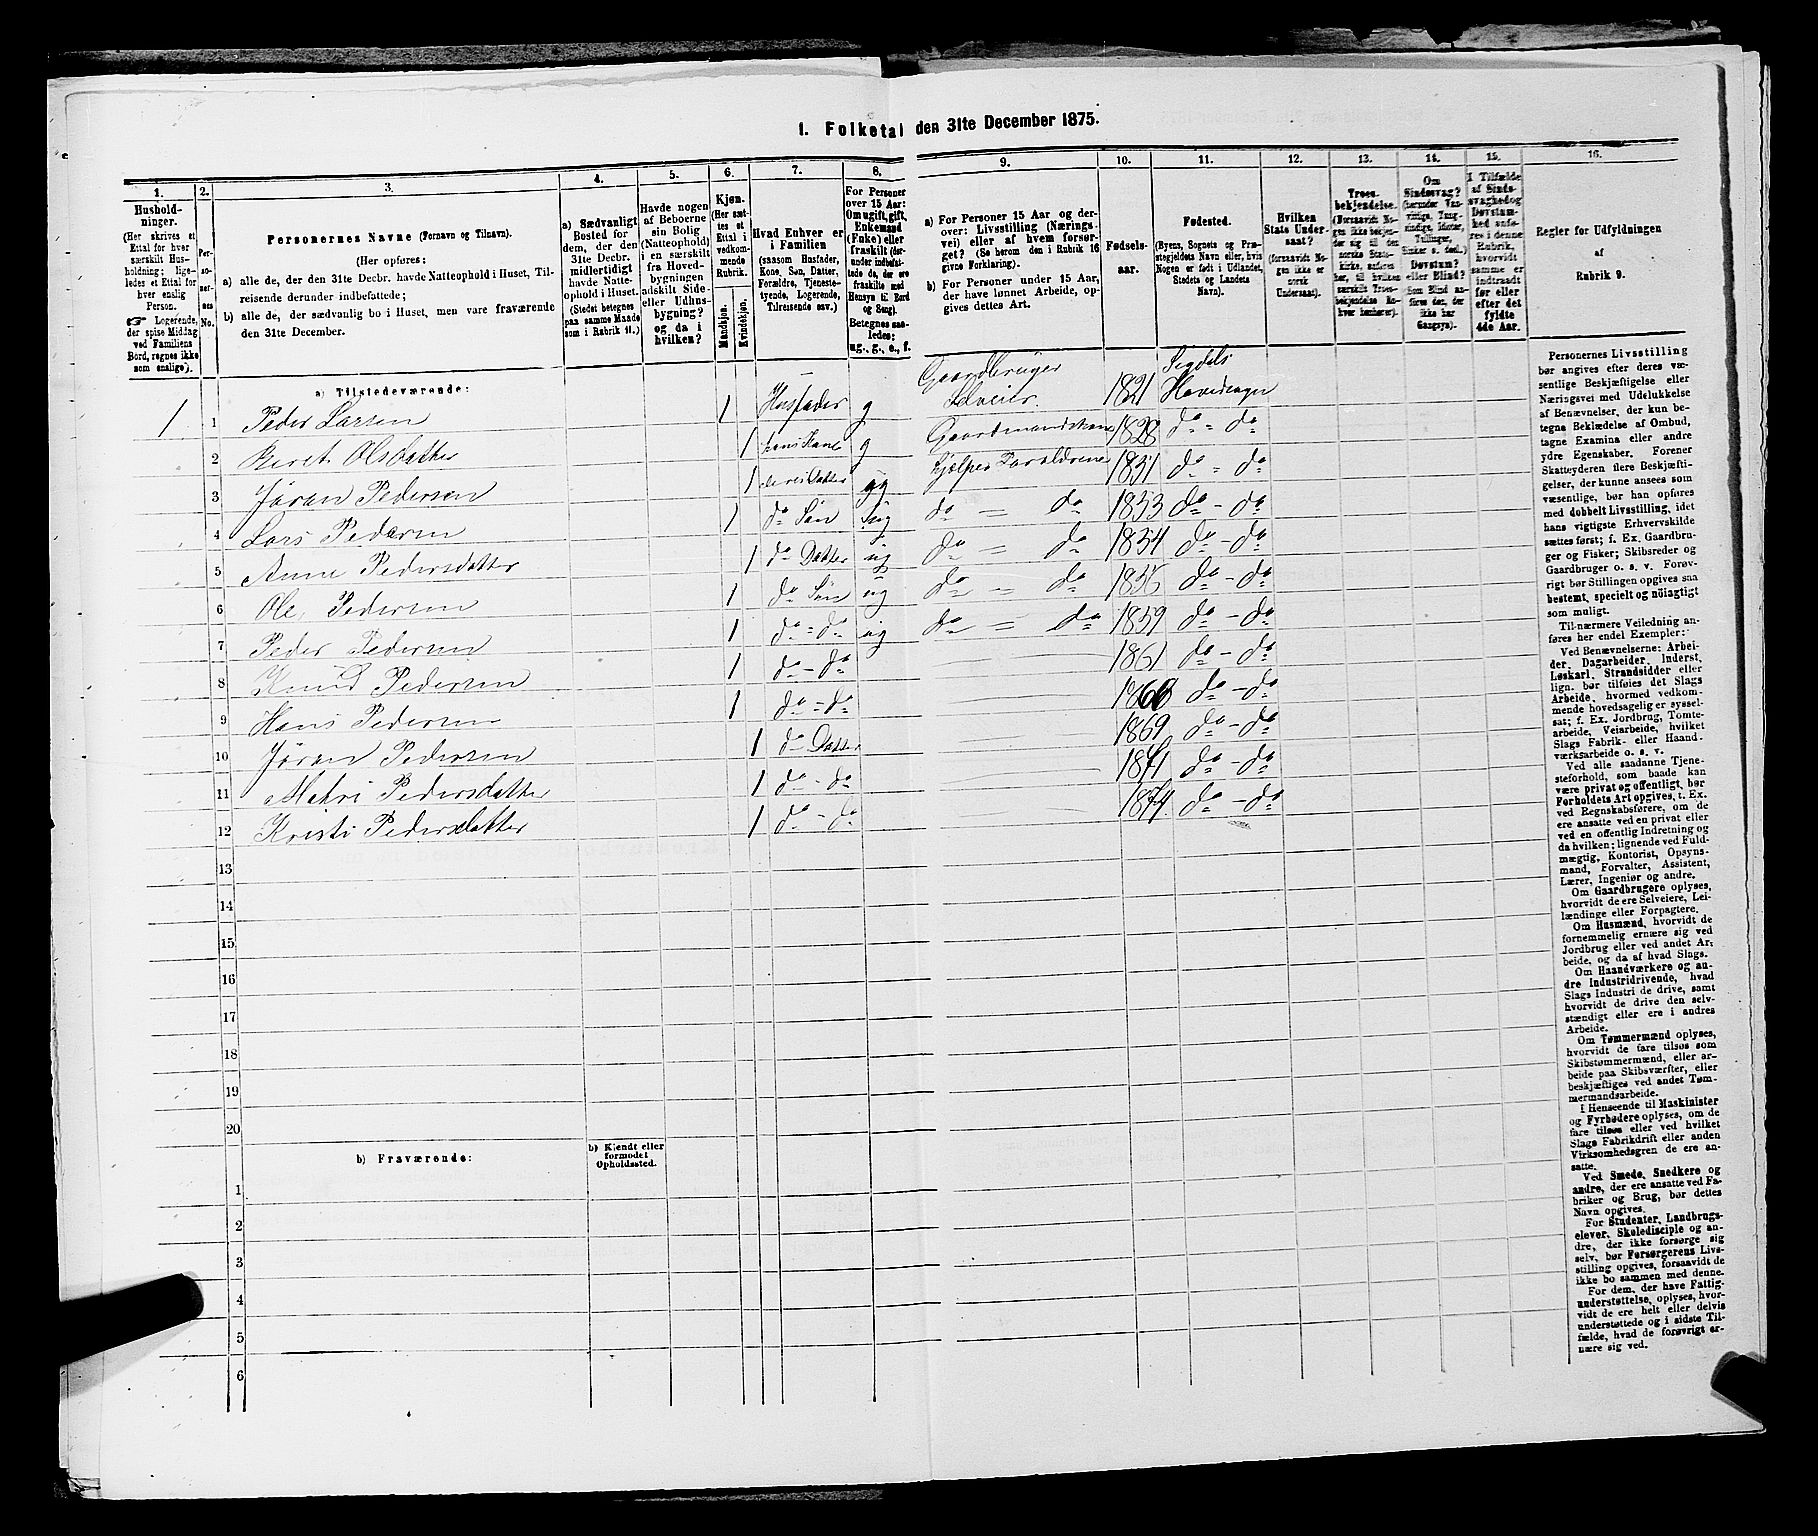 1. Folketal den 31te December 1875.
1. 2. 3. 4. 5. 6. 7. 8. 9. 10. 11. 12. 13. 14. 15. 16.
Hushold-
ninger.
(Her skrives et
Ettal for hver
særskilt Hus-
holdning; lige-
ledes et Ettal for
hver enslig
Person.
☞ Logerende,
der spise Middag
ved Familiens
Bord, regnes ikke
som enslige).
Per-
so-
ner-
nes
No.
Personernes Navne (Fornavn og Tilnavn).
(Her opføres:
a) alle de, der den 31te Decbr. havde Natteophold i Huset, Til-
reisende derunder indbefattede;
b) alle de, der sædvanlig bo i Huset, men vare fraværende
den 31te December.
a) Sædvanligt
Bosted for
dem, der den
31te Decbr.
midlertidigt
havde Natte-
ophold i Huset.
(Stedet betegnes
paa samme Maade
som i Rubrik 11.)
Havde nogen
af Beboerne
sin Bolig
(Natteophold)
i en særskilt
fra Hoved-
bygningen
adskilt Side-
eller Udhus-
bygning?
og da i
hvilken?
Kjøn.
(Her sæt-
tes et
Ettal i
vedkom-
mende
Rubrik.
Mandkjøn.
Kvindekjøn.
Hvad Enhver er
i Familien
(saasom Husfader,
Kone, Søn, Datter,
Forældre, Tjeneste-
tyende, Logerende,
Tilreisende osv.)
For Personer
over 15 Aar:
Om ugift, gift,
Enkemand
(Enke) eller
fraskilt (der-
under indbefat-
tede de, der ere
fraskilte med
Hensyn til Bord
og Seng).
Betegnes saa-
ledes:
ug., g., e., f.
a) For Personer 15 Aar og der-
over: Livsstilling (Nærings-
vei) eller af hvem forsør-
get? (Se herom den i Rubrik 16
givne Forklaring).
b) For Personer under 15 Aar,
der have lønnet Arbeide, op-
gives dettes Art.
Fødsels-
aar.
Fødested.
(Byens, Sognets og Præ-
stegjeldets Navn eller, hvis
Nogen er født i Udlandet,
Stedets og Landets
Navn).
Hvilken
Stats Under-
saat?
(forsaavidt No-
gen ikke er
norsk
Undersaat).
Troes-
bekjendelse.
(Forsaavidt No-
gen ikke bekjen-
der sig til den
norske Stats-
kirke, anføres
her, til hvilken
særskilt Troes-
bekjendelse En-
hver henhører).
Om
Sindssvag?
Døvstum?
eller Blind?
I Tilfælde
af Sinds-
svaghed og
Døvstum-
hed anfø-
res i denne
Rubrik,
hvorvidt
samme er
indtraadt
før eller
efter det
fyldte
4de Aar.
Regler for Udfyldningen
af
Rubrik 9.
a) Tilstedeværende:
1 1 Peder Larsen 1 Husfader g Gaardbruger Selveier. 1821 Sigdals Hovedsogn
2 Beret Olsdatter 1 hans Kone g Gaardmandskone 1828 do = do
3 Jøran Pedersen 1 deres Datter ug Hjælper Forældrene 1851 do = do
4 Lars Pedersen 1 do Søn ug do = do 1853 do - do
5 Anne Pedersdatter 1 do Datter ug do = do 1854 do - do
6 Ole Pedersen 1 do Søn ug do = do 1856 do - do
7 Peder Pedersen 1 do = do ug do = do 1859 do - do
8 Knud Pedersen 1 do - do 1861 do - do
9 Hans Pedersen 1 do = do 1866 do - do
10 Jøran Pedersen 1 do Datter 1869 do - do
11 Mari Pedersdatter 1 do - do 1871 do - do
12 Kristi Pedersdatter 1 do - do 1874. do - do
13
14
15
16
17
18
19
20
b) Fraværende:
b) Kjendt eller
formodet
Opholdssted.
1
2
3
4
5
6
Personernes Livsstilling
bør angives efter deres væ-
sentlige Beskjæftigelse eller
Næringsvei med Udelukkelse
af Benævnelser, der kun be-
tegne Beklædelse af Ombud,
tagne Examina eller andre
ydre Egenskaber. Forener
Skatteyderen flere Beskjæfti-
gelser, der kunne ansees som
væsentlige, bør han opføres
med dobbelt Livsstilling, idet
hans vigtigste Erhvervskilde
sættes først; f. Ex. Gaardbru-
ger og Fisker; Skibsreder og
Gaardbruger o. s. v. Forøv-
rigt bør Stillingen opgives saa
bestemt, specielt og nøiagtigt
som muligt.
Til nærmere Veiledning an-
føres her endel Exempler:
Ved Benævnelserne: Arbei-
der, Dagarbeider, Inderst,
Løskarl, Strandsidder eller
lign. bør tilføies det Slags
Arbeide, hvormed vedkom-
mende hovedsagelig er syssel-
sat; f. Ex. Jordbrug, Tomte-
arbeide, Veiarbeide, hvilket
Slags Fabrik- eller Haand-
værksarbeide o. s. v.
Ved alle saadanne Tjene-
steforhold, som baade kan
være privat og offentligt, bør
Forholdets Art opgives, t. Ex.
ved Regnskabsførere, om de
ere ansatte ved en privat eller
ved en offentlig Indretning og
da hvilken; lignende ved Fuld-
mægtig, Kontorist, Opsyns-
mand, Forvalter, Assistent,
Lærer, Ingeniør og andre.
Om Gaardbrugere oplyses,
hvorvidt de ere Selveiere, Lei-
lændinge eller Forpagtere.
Om Husmænd, hvorvidt de
fornemmelig ernære sig ved
Jordbrug eller ved andet Ar-
beide, og da af hvad Slags.
Om Haandværkere og an-
dre Industridrivende, hvad
Slags Industri de drive, samt
hvorvidt de drive den selv-
stændigt eller ere i andres
Arbeide.
Om Tømmermænd oplyses,
hvorvidt de fare tilsøs som
Skibstømmermænd, eller ar-
beide paa Skibsværfter, eller
beskjæftiges ved andet Tøm-
mermandsarbeide.
I Henseende til Maskinister
og Fyrbødere oplyses, om de
fare tilsøs eller ved hvilket
Slags Fabrikdrift eller anden
Virksomhedsgren de ere an-
satte.
Ved Smede, Snedkere og
andre, der ere ansatte ved Fa-
briker og Brug, bør dettes
Navn opgives.
For Studenter, Landbrugs-
elever, Skoledisciple og an-
dre, der ikke forsørge sig
selv, bør Forsørgerens Livs-
stilling opgives, forsaavidt de
ikke bo sammen med denne.
For dem, der have Fattig-
understøttelse, oplyses, hvor-
vidt de ere helt eller delvis
understøttede og i sidste Til-
fælde, hvad de forøvrigt er-
nære sig ved.